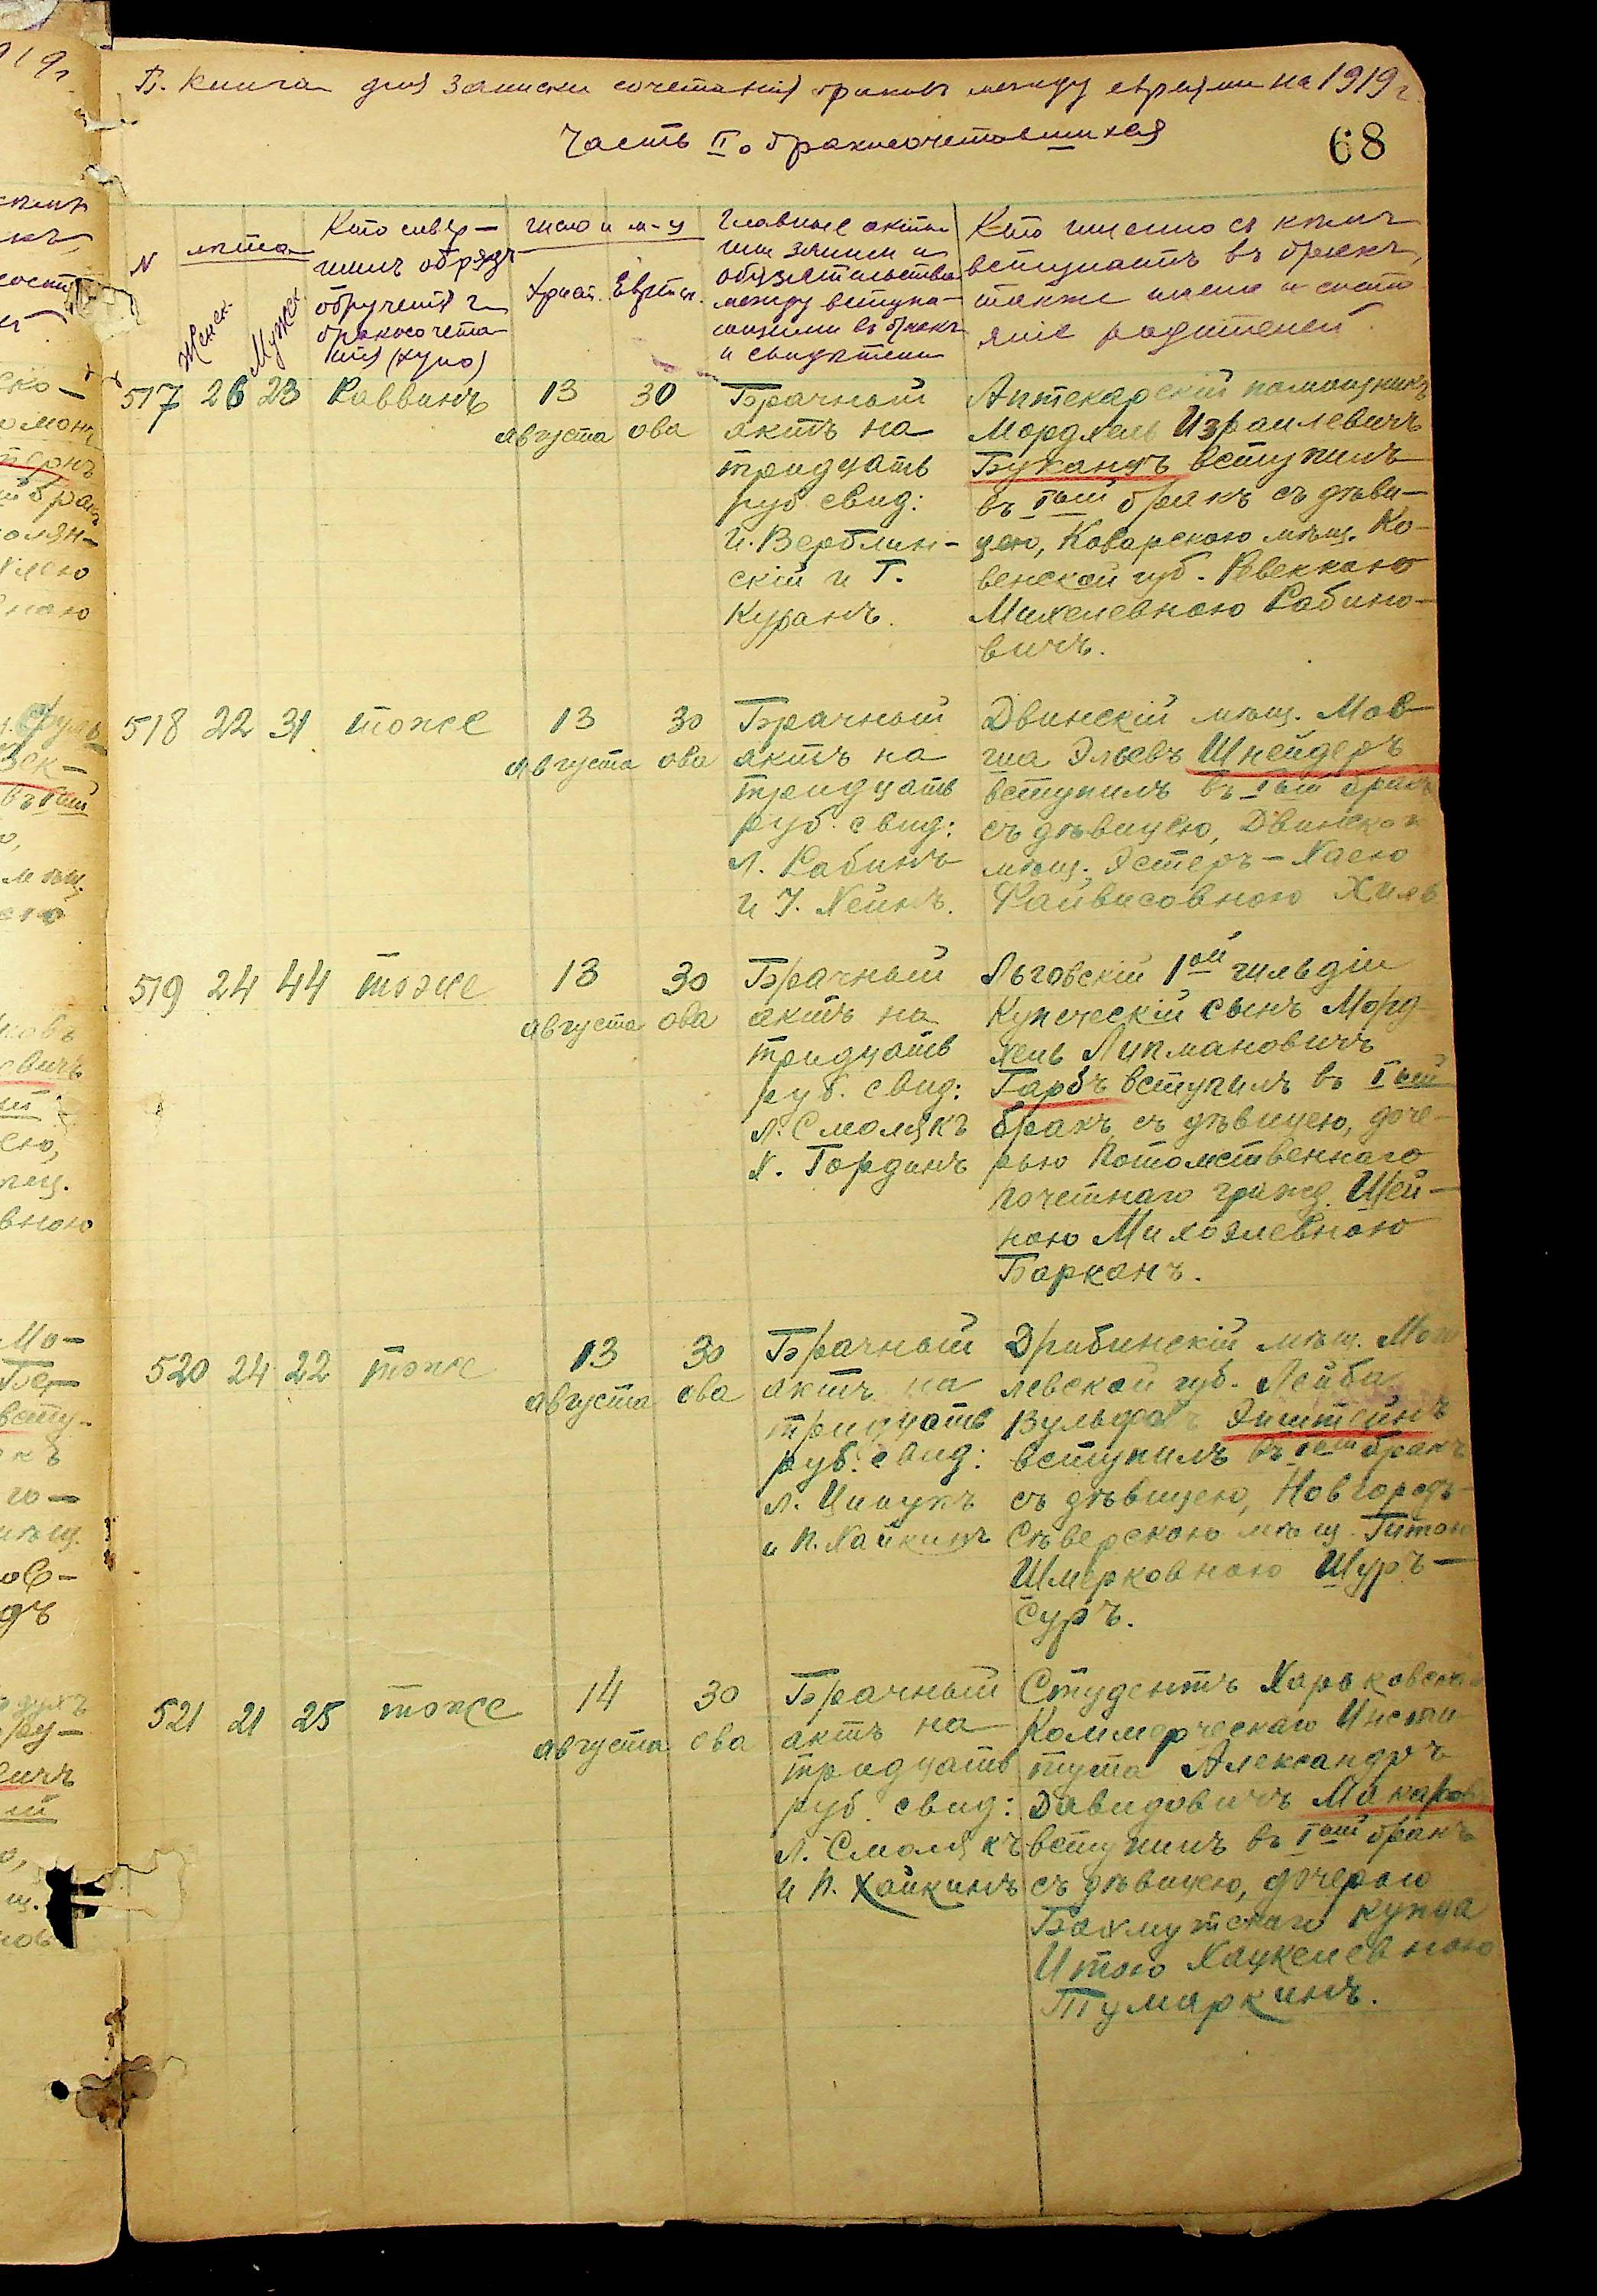 Б. Книга для записки сочетанія браковъ между евреями на 1919 г.
Часть II о бракосочетавшихся
68
N
лѣта
Женск.
Мужск.
Кто совер-
шилъ обрядъ
обрученія и
бракосочета
нія (хупо)
число и м-ц
Христ. Еврейск.
Главные акты
или записи и
обязательства
между вступа-
ющими въ бракъ
и свидѣтели
Кто именно съ кѣмъ
вступаетъ въ бракъ,
также имена и состо
яніе родителей.
517 26 23 Раввинъ
13 30
августа ова
Брачный
актъ на
тридцать
руб свид:
И. Верблин-
скій и Г.
Куранъ.
Аптекарскій помощникъ
Мордхель Израилевичъ
Буканцъ вступилъ
въ Iый бракъ съ дѣви-
цею, Коварскою мѣщ. Ко-
венской губ. Ревеккою
Михелевною Рабино-
вичъ.
518 22 31 тоже
13 30
августа ова
Брачный
актъ на
тридцать
руб. свид:
Л. Рабинъ
и У. Хейнъ.
Двинскій мѣщ. Мов
ша Эльевъ Шнейдеръ
вступилъ въ Iый бракъ
съ дѣвицею, Двинской
мѣщ. Эстеръ-Хаею
Файвисовною Хиль
519 24 44 тоже
13 30
августа ова
Брачный
актъ на
тридцать
руб. свид:
Л. Смолякъ
Х. Гординъ
Льговскій 1ой гильдіи
Купеческій сынъ Морд
хель Липмановичъ
Гарбъ вступилъ въ Iый
бракъ съ дѣвицею, доче-
рью Потомственнаго
почетнаго гражд. Шей-
ною Михоэлевною
Барканъ.
520 24 22 тоже
13 30
августа ова
Брачный
актъ на
тридцать
руб. свид:
Л. Цицукъ
и П. Хайкинъ
Дрибинскій мѣщ. Моги
левской губ. Лейба
Вульфовъ Эпштейнъ
вступилъ въ Iый бракъ
съ дѣвицею, Новгородъ-
Сѣверскою мѣщ. Гитою
Шмерковною Шуръ-
Суръ.
521 21 25 тоже
14 30
августа ова
Брачный
актъ на
тридцать
руб. свид:
Л. Смолякъ
и П. Хайкинъ
Студентъ Харьковскаго
Коммерческаго Инсти
тута Александръ
Давидовичъ Макаров
вступилъ въ Iый бракъ
съ дѣвицею, дочерью
Бахмутскаго купца
Итою Хацкелевною
Тумаркинъ.